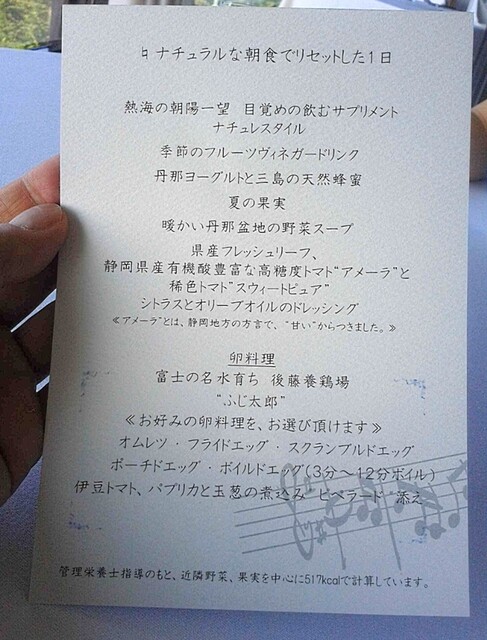 ♮ナチュラルな朝食でリセットした1日
熱海の朝陽一望 目覚めの飲むサプリメント
ナチュレスタイル
季節のフルーツヴィネガードリンク
丹那ヨーグルトと三島の天然蜂蜜
夏の果実
暖かい丹那盆地の野菜スープ
県産フレッシュリーフ、
静岡県産有機酸豊富な高糖度トマト“アメーラ”と
稀色トマト“スウィートピュア”
シトラスとオリーブオイルのドレッシング
≪アメーラ”とは、静岡地方の方言で、“甘い”からつきました。≫
卵料理
富士の名水育ち 後藤養鶏場
“ふじ太郎”
≪お好みの卵料理を、お選び頂けます≫
オムレツ・フライドエッグ・スクランブルドエッグ
ポーチドエッグ・ボイルドエッグ(3分～12分ボイル)
伊豆トマト、パプリカと玉葱の煮込み ピペラード 添え
管理栄養士指導のもと、近隣野菜、果実を中心に517kcalで計算しています。